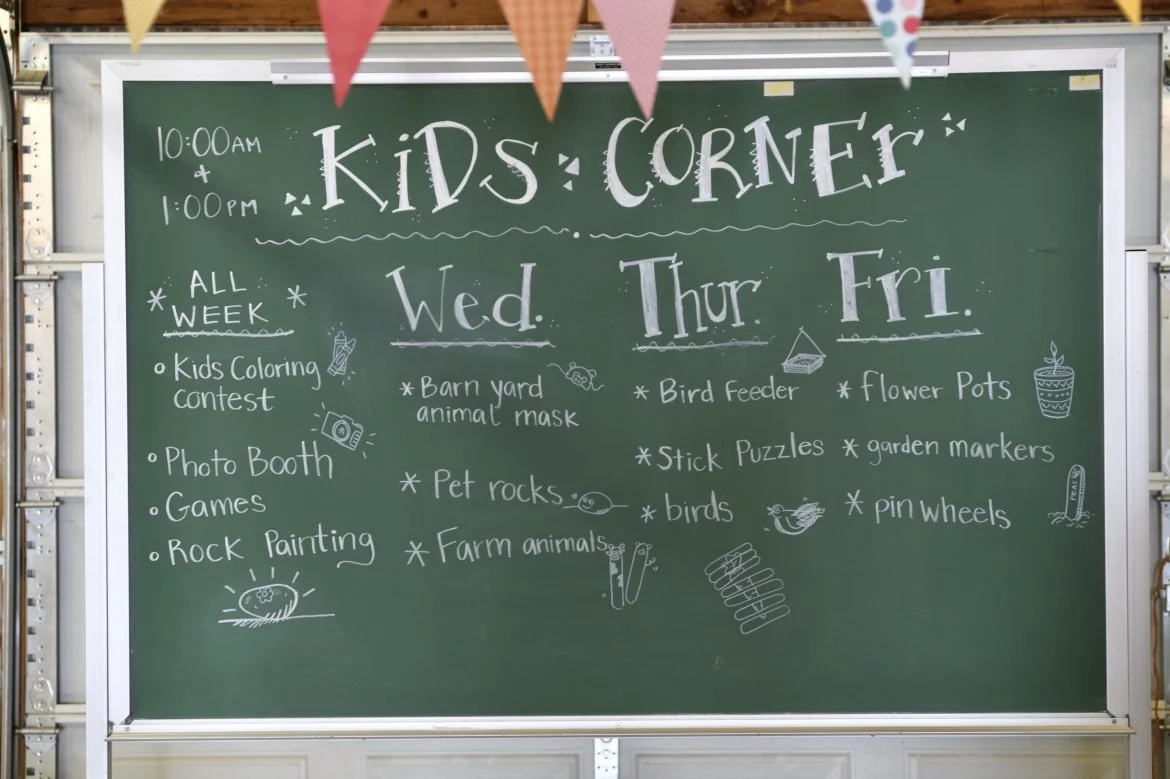 10:00AM
+
1:00PM
KiDS CORNEr
ALL
WEEK
Kids Coloring
contest
Photo Booth
Games
Rock Painting
Wed.
Barn yard
animal mask
Pet rocks
Farm animals
Thur.
Bird Feeder
Stick Puzzles
birds
Fri.
flower Pots
garden markers
pin wheels
PEAS